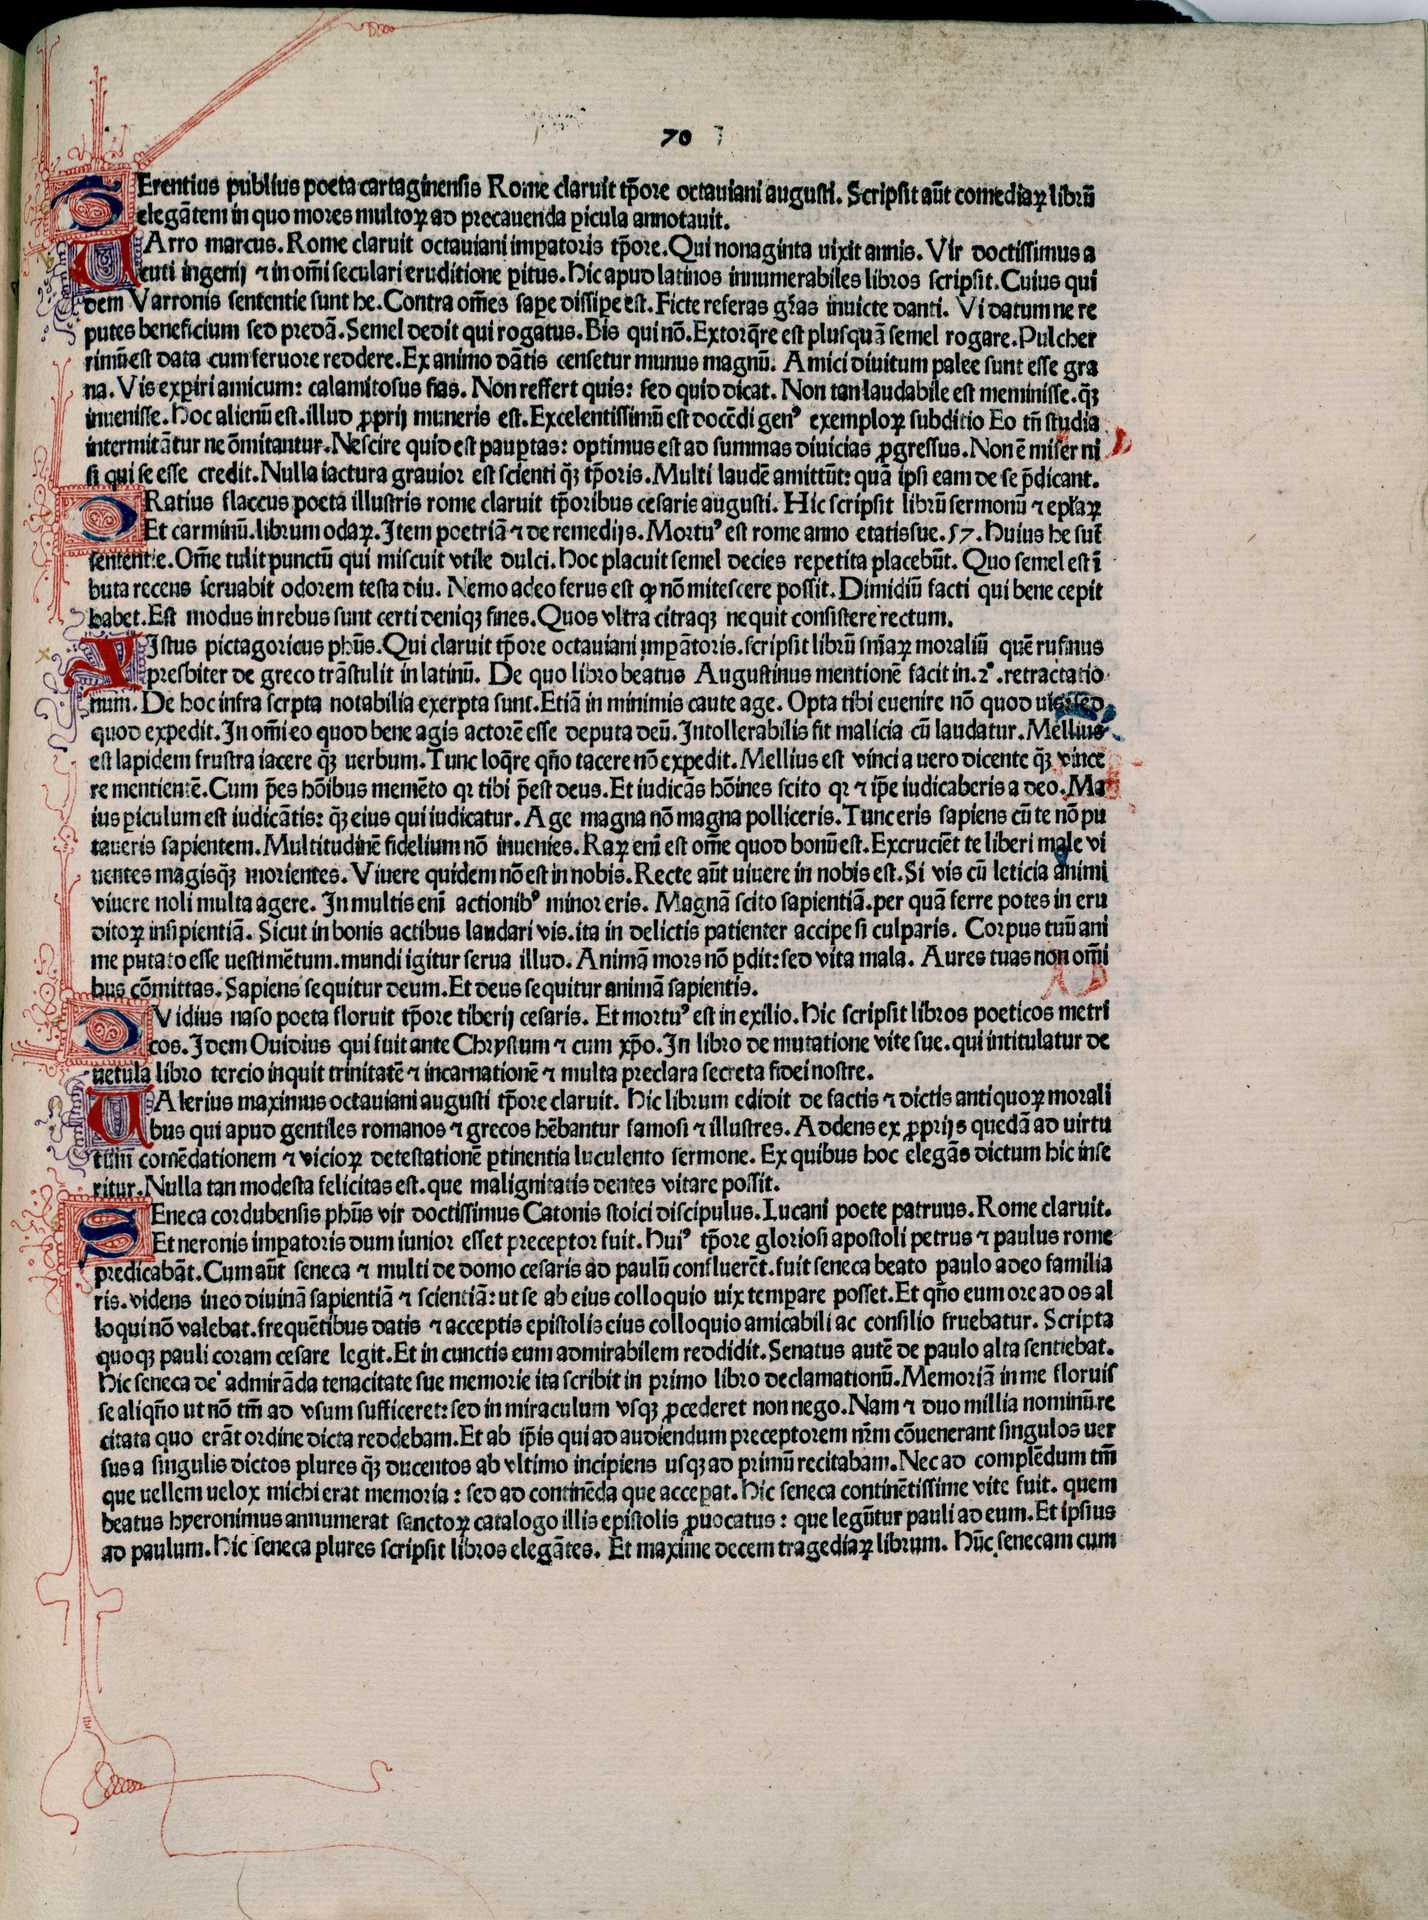 70
TErentius publius poeta cartaginensis Rome claruit tp̄ore octauiani augusti. Scripsit aūt comediaꝝ librū
elegātem in quo mores multoꝝ ad precauenda ꝑicula annotauit.
UArro marcus. Rome claruit octauiani imꝑatoris tp̄ore. Qui nonaginta uixit annis. Vir doctissimus a
cuti ingenij ⁊ in om̄i seculari eruditione ꝑitus. Hic apud latinos innumerabiles libros scripsit. Cuius qui
dem Varronis sententie sunt he. Contra om̄es sape dissipe est. Ficte referas gr̄as inuicte danti. Vi datum ne re
putes beneficium sed predā. Semel dedit qui rogatus. Bis qui nō. Extorq̄re est plusquā semel rogare. Pulcher
rimū est data cum feruore reddere. Ex animo dātis censetur munus magnū. Amici diuitum palee sunt esse gra
na. Vis exꝑiri amicum: calamitosus fias. Non reffert quis: sed quid dicat. Non tan laudabile est meminisse. qꝫ̄
inuenisse. Hoc alienū est. illud ꝓprij muneris est. Excelentissimū est docēdi genꝰ exemploꝝ subditio Eo tn̄ studia
intermitātur ne ōmitantur. Nescire quid est pauꝑtas: optimus est ad summas diuicias ꝓgressus. Non ē miser ni
si qui se esse credit. Nulla iactura grauior est scienti qꝫ̄ tp̄oris. Multi laudē amittūt: quā ipsi eam de se p̄dicant.
ORatius flaccus poeta illustris rome claruit tp̄oribus cesaris augusti. Hic scripsit librū sermonū ⁊ ep̄laꝝ
Et carminū. librum odaꝝ. Item poetriā ⁊ de remedijs. Mortuꝰ est rome anno etatis sue. 57. Huius he sūt
sententie. Om̄e tulit punctū qui miscuit vtile dulci. Hoc placuit semel decies repetita placebūt. Quo semel est ī
buta recens seruabit odorem testa diu. Nemo adeo ferus est ꝙ nō mitescere possit. Dimidiū facti qui bene cepit
habet. Est modus in rebus sunt certi deniqꝫ fines. Quos vltra citraqꝫ nequit consistere rectum.
XIstus pictagoricus ph̄us. Qui claruit tp̄ore octauiani imꝑatoris. scripsit librū sn̄iaꝝ moraliū quē rufinus
presbiter de greco trāstulit in latinū. De quo libro beatus Augustinus mentionē facit in. 2°. retractatio
num. De hoc infra scrpta notabilia exerpta sunt. Etiā in minimis caute age. Opta tibi euenire nō quod uis: sed
quod expedit. In om̄i eo quod bene agis actorē esse deputa deū. Intollerabilis fit malicia cū laudatur. Mellius
est lapidem frustra iacere qꝫ̄ uerbum. Tunc loq̄re qn̄o tacere nō expedit. Mellius est vinci a uero dicente qꝫ̄ vince
re mentientē. Cum p̄es hōibus memēto qꝛ tibi p̄est deus. Et iudicās hōines scito qꝛ ⁊ ip̄e iudicaberis a deo. Ma
ius ꝑiculum est iudicātis: qꝫ̄ eius qui iudicatur. Age magna nō magna polliceris. Tunc eris sapiens cū te nō pu
taueris sapientem. Multitudinē fidelium nō inuenies. Raꝝ eni̅ est om̄e quod bonū est. Excruciēt te liberi male vi
uentes magisqꝫ̄ morientes. Viuere quidem nō est in nobis. Recte aūt uiuere in nobis est. Si vis cū leticia animi
viuere noli multa agere. In multis eni̅ actionibꝰ minor eris. Magnā scito sapientiā. per quā ferre potes in eru
ditoꝝ insipientiā. Sicut in bonis actibus laudari vis. ita in delictis patienter accipe si culparis. Corpus tuū ani
me putato esse uestimētum. mundi igitur serua illud. Animā mors nō ꝑdit: sed vita mala. Aures tuas non om̄i
bus cōmittas. Sapiens sequitur deum. Et deus sequitur animā sapientis.
OVidius naso poeta floruit tp̄ore tiberij cesaris. Et mortuꝰ est in exilio. Hic scripsit libros poeticos metri
cos. Idem Ouidius qui fuit ante Chrystum ⁊ cum xp̄o. In libro de mutatione vite sue. qui intitulatur de
uetula libro tercio inquit trinitatē ⁊ incarnationē ⁊ multa preclara secreta fidei nostre.
UAlerius maximus octauiani augusti tp̄ore claruit. Hic librum edidit de factis ⁊ dictis antiquoꝝ morali
bus qui apud gentiles romanos ⁊ grecos hēbantur famosi ⁊ illustres. Addens ex ꝓprijs quedā ad uirtu
tum̄ comēdationem ⁊ vicioꝝ detestationē ꝑtinentia luculento sermone. Ex quibus hoc elegās dictum hic inse
ritur. Nulla tan modesta felicitas est. que malignitatis dentes vitare possit.
SEneca cordubensis ph̄us vir doctissimus Catonis stoici discipulus. Lucani poete patruus. Rome claruit.
Et neronis imꝑatoris dum iunior esset preceptor fuit. Huiꝰ tp̄ore gloriosi apostoli petrus ⁊ paulus rome
predicabāt. Cum aūt seneca ⁊ multi de domo cesaris ad paulū confluerēt. fuit seneca beato paulo adeo familia
ris. videns in eo diuinā sapientiā ⁊ scientiā: ut se ab eius colloquio uix temꝑare posset. Et qn̄o eum ore ad os al
loqui nō valebat. frequētibus datis ⁊ acceptis epistolis eius colloquio amicabili ac consilio fruebatur. Scripta
quoqꝫ pauli coram cesare legit. Et in cunctis eum admirabilem reddidit. Senatus autē de paulo alta sentiebat.
Hic seneca de admirāda tenacitate sue memorie ita scribit in primo libro declamationū. Memoriā in me floruis
se aliqn̄o ut nō tm̄ ad vsum sufficeret: sed in miraculum vsqꝫ ꝓcederet non nego. Nam ⁊ duo millia nominū re
citata quo erāt ordine dicta reddebam. Et ab ip̄is qui ad audiendum preceptorem nr̄m cōuenerant singulos uer
sus a singulis dictos plures qꝫ̄ ducentos ab vltimo incipiens usqꝫ ad primū recitabam. Nec ad complēdum tm̄
que uellem uelox michi erat memoria: sed ad continēda que acceꝑat. Hic seneca continētissime vite fuit. quem
beatus hyeronimus annumerat sanctoꝝ catalogo illis epistolis ꝓuocatus: que legūtur pauli ad eum. Et ipsius
ad paulum. Hic seneca plures scripsit libros elegātes. Et maxime decem tragediaꝝ librum. Hūc senecam cum